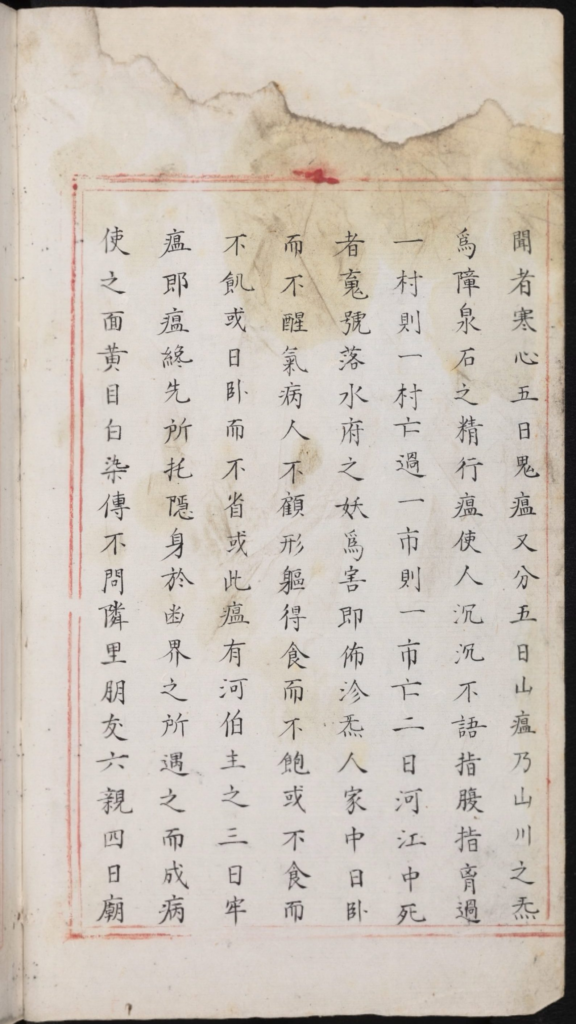 聞者寒心五日鬼瘟又分五日山瘟乃山川之炁
爲障泉石之精行瘟使人沉沉不語指腹指肓過
一村則一村亡過一市則一市亡二日河江中死
者䰟號落水府之妖爲害即佈沴炁人家中日卧
而不醒氣病人不顧形軀得食而不飽或不食而
不飢或日卧而不省或此瘟有河伯主之三曰牢
瘟即瘟終先所托隱身於凼界之所遇之而成病
使之面黃目白染傳不問隣里朋友六親四曰廟